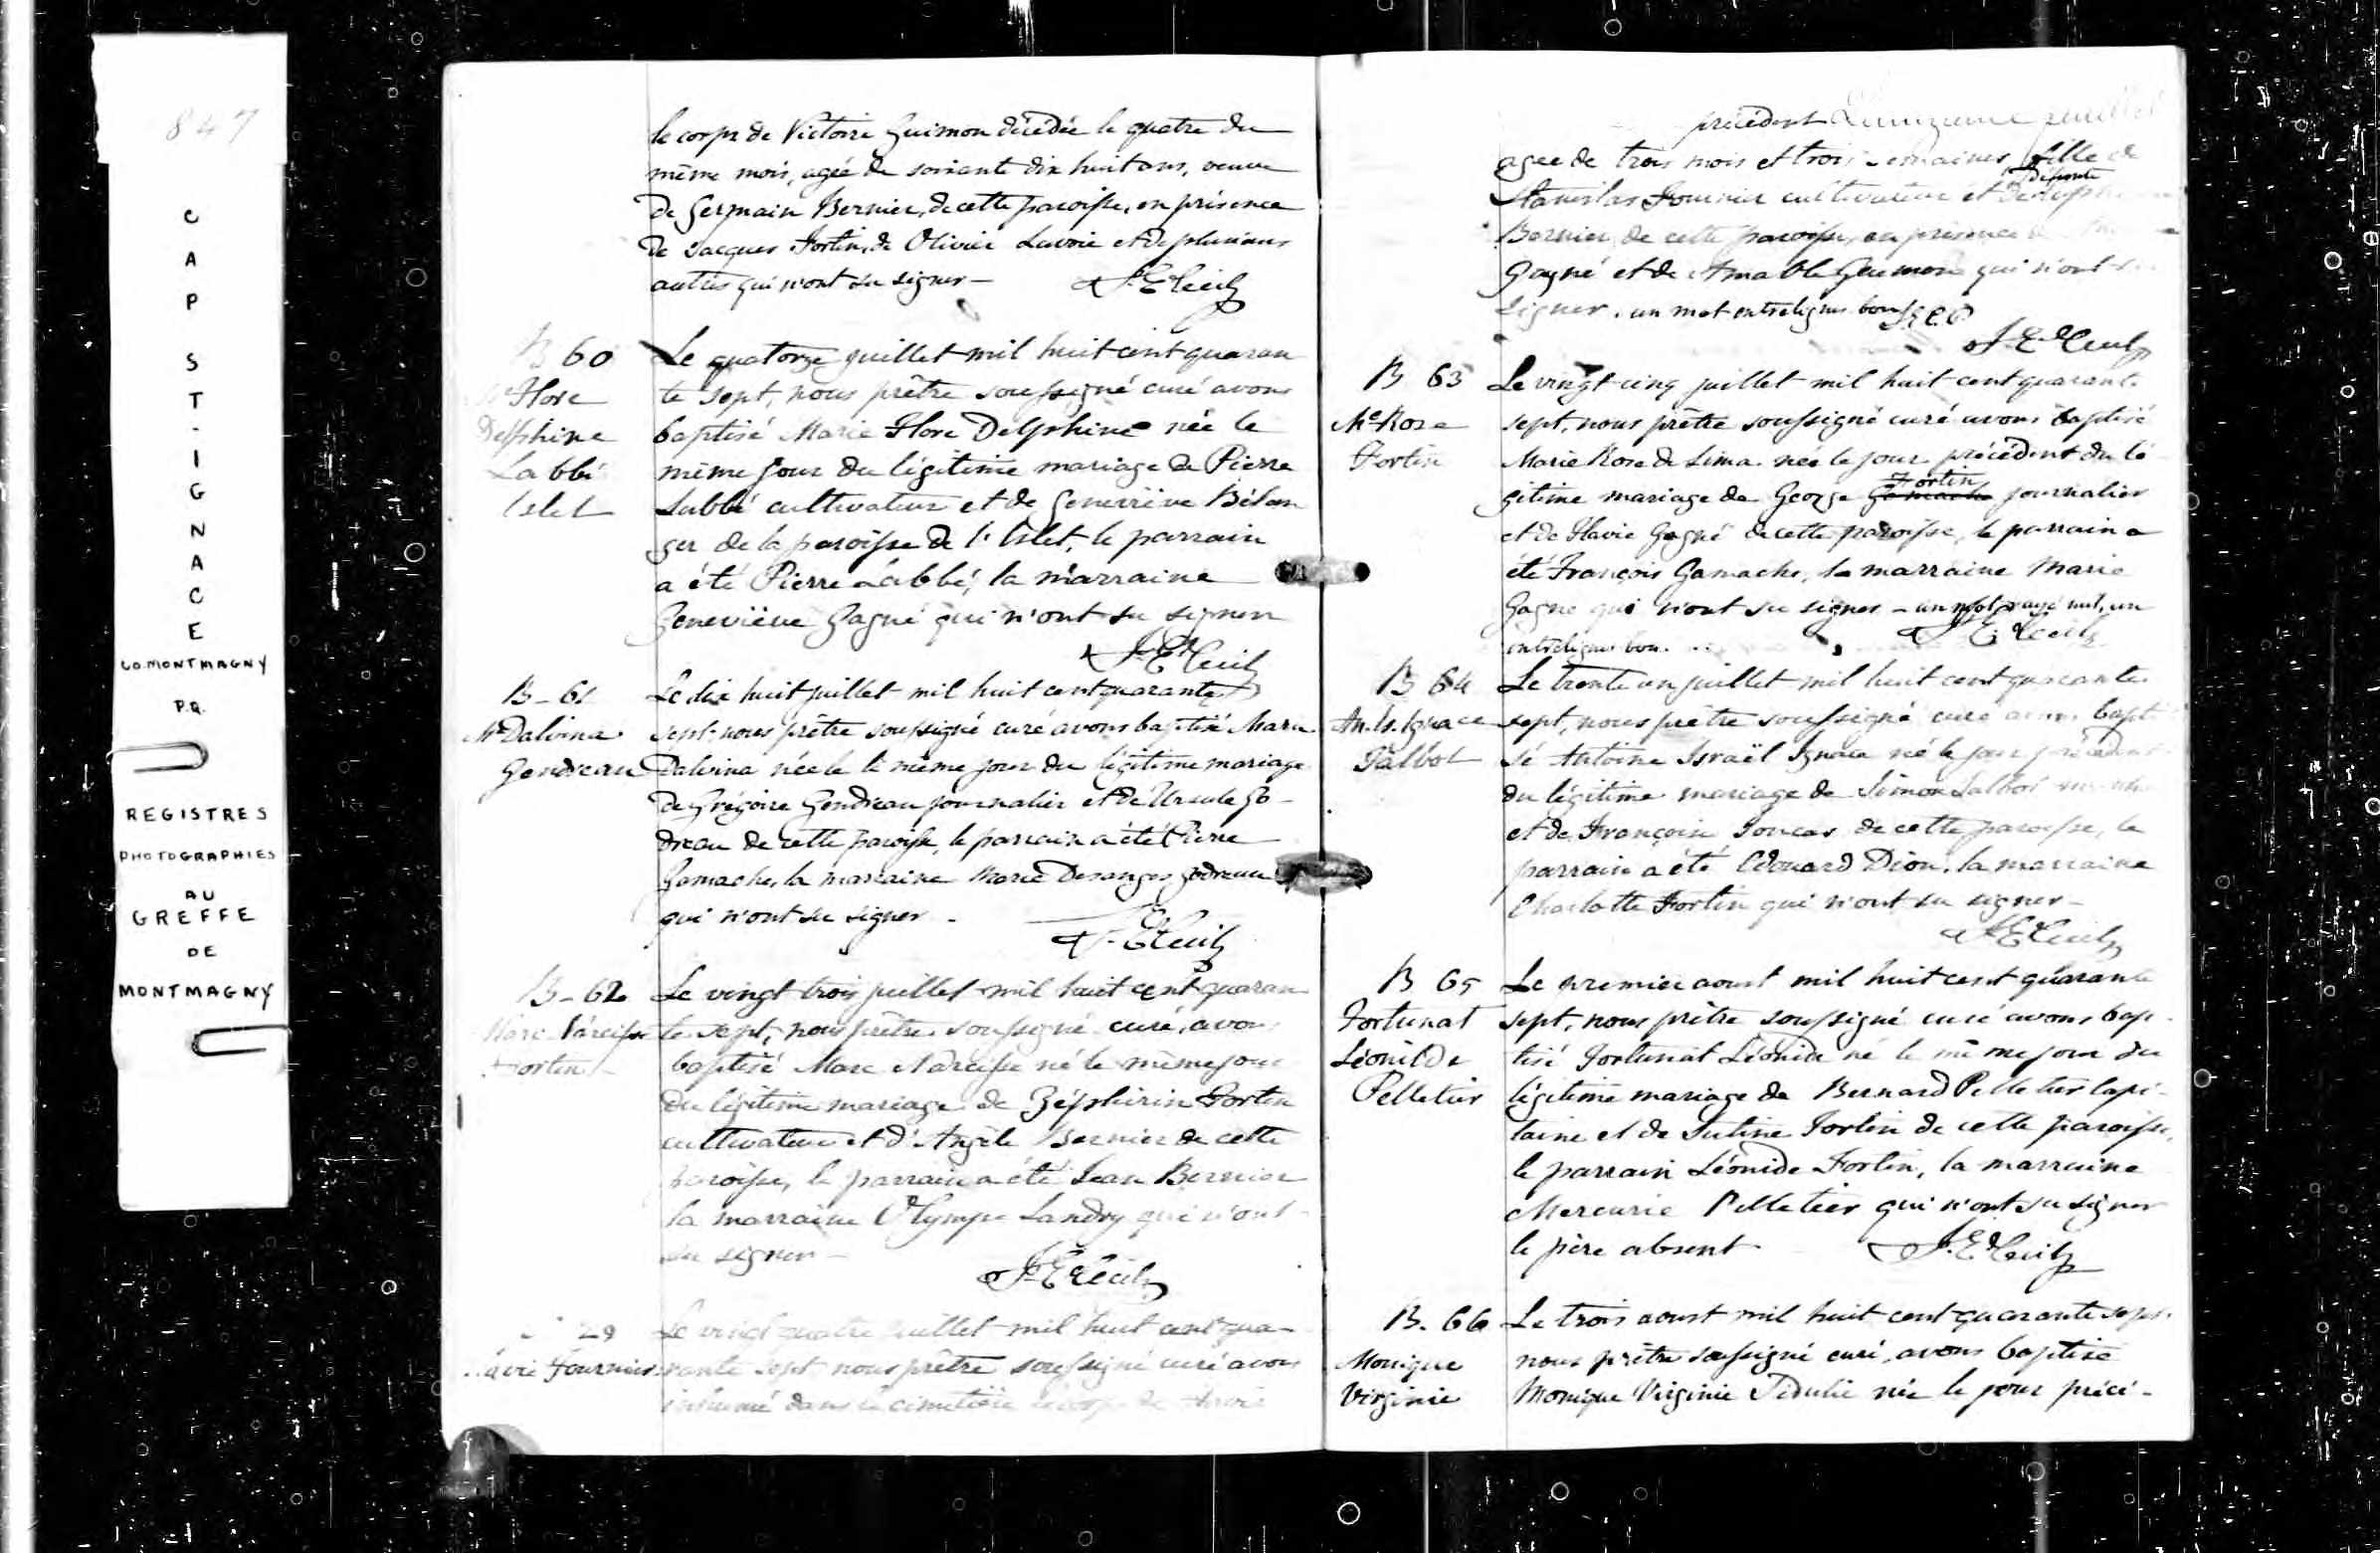 847
CAP ST-IGNACE
CO. MONTMAGNY
P.Q.
REGISTRES
PHOTOGRAPHIES
AU
GREFFE
DE
MONTMAGNY
le corps de Victoire Guimon décédée le quatre du
même mois, agée de soixante dix huit ans, veuve
de Germain Bernier, de cette paroisse, en présence
de Jacques Fortin, de Olivier Lavoie et de plusieurs
autres qui n'ont su signer —
B 60
Flore
Delphine
Labbé
Islet
Le quatorze juillet mil huit cent quaran
te sept, nous prêtre soussigné curé avons
baptisé Marie Flore Delphine née le
même jour du légitime mariage de Pierre
Labbé cultivateur et de Geneviève Bélan
ger de la paroisse de l'Islet, le parrain
a été Pierre Labbé, la marraine
Geneviève Gagné qui n'ont su signer
B - 61
Me Dalvina
Gendreau
Le dix huit juillet mil huit cent quarante
sept, nous prêtre soussigné curé avons baptisé Marie
Dalvina née le le même jour du légitime mariage
de Grégoire Gendreau journalier et de Ursule Go-
dreau de cette paroisse, le parrain a été Pierre
Gamache, la marraine Marie Desanges Godreau
qui n'ont su signer -
B - 62
Marc Narcisse
Fortin
Le vingt trois juillet mil huit cent quaran
te sept, nous prêtre soussigné curé, avons
baptisé Marc Narcisse né le même jour
du légitime mariage de Zéphirin Fortin
cultivateur et d'Angèle Bernier de cette
paroisse, le parrain a été Jean Bernier
la marraine Olympe Landry qui n'ont
su signer —
29
Fournier
Le vingt quatre juillet mil huit cent qua-
rante sept nous prêtre soussigné curé avons
inhumé dans le cimetière le corps de
précédent
agée de trois mois et trois semaines, fille de
défunte
Stanislas Fournier cultivateur et de
Bernier, de cette paroisse, en présence
Gagné et de Amable Guimon qui n'ont
signer. un mot entrelignes bon
B 63
Me Rose
Fortin
Le vingt cinq juillet mil huit cent quarante
sept, nous prêtre soussigné curé avons baptisé
Marie Rose de Lima née le jour précédent du lé
Fortin
gitime mariage de George Gamache journalier
et de Flavie Gagné de cette paroisse, le parrain a
été François Gamache, la marraine Marie
Gagné qui n'ont su signer - un mot rayé nul, un
entrelignes bon.
B 64
An. Is. Ignace
Talbot
Le trente un juillet mil huit cent quarante
sept, nous prêtre soussigné curé avons bapti
sé Antoine Israël Ignace né le jour précédent
du légitime mariage de Simon Talbot
et de Françoise Joncas de cette paroisse, le
parrain a été Edouard Dion, la marraine
Charlotte Fortin qui n'ont su signer —
B 65
Fortunat
Léonilde
Pelletier
Le premier aoust mil huit cent quarante
sept, nous prêtre soussigné curé avons bap-
tisé Fortunat Léonide né le même jour du
légitime mariage de Bernard Pelletier capi-
taine et de Justine Fortin de cette paroisse,
le parrain Léonide Fortin, la marraine
Mercurie Pelletier qui n'ont su signer
le père absent
B. 66
Monique
Virginie
Le trois aoust mil huit cent quarante sept
nous prêtre soussigné curé, avons baptisé
Monique Virginie née le jour précé-